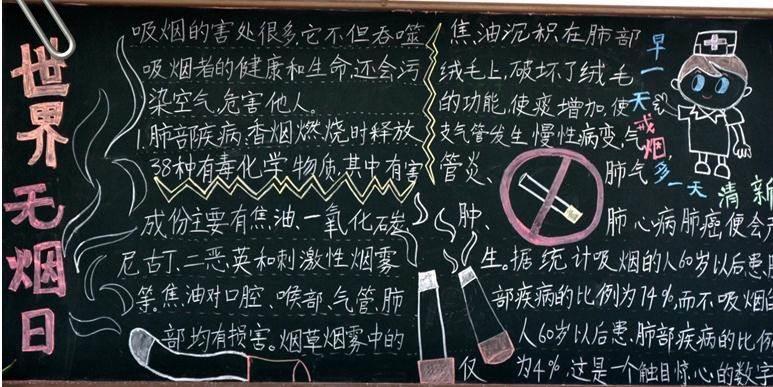 世界无烟日
吸烟的害处很多,它不但吞噬
吸烟者的健康和生命,还会污
染空气,危害他人。
1.肺部疾病:香烟燃烧时释放
38种有毒化学物质,其中有害
成份主要有焦油、一氧化碳、
尼古丁、二恶英和刺激性烟雾
等。焦油对口腔、喉部、气管、肺
部均有损害。烟草烟雾中的
焦油沉积在肺部
绒毛上,破坏了绒毛
的功能,使痰增加,使
支气管发生慢性病变,气
管炎、肺气
肿、肺心病肺癌便会
生。据统计吸烟的人60岁以后患
部疾病的比例为74%,而不吸烟
人60岁以后患肺部疾病的比例
仅为4%,这是一个触目惊心的数字
早一天戒烟,多一天清新